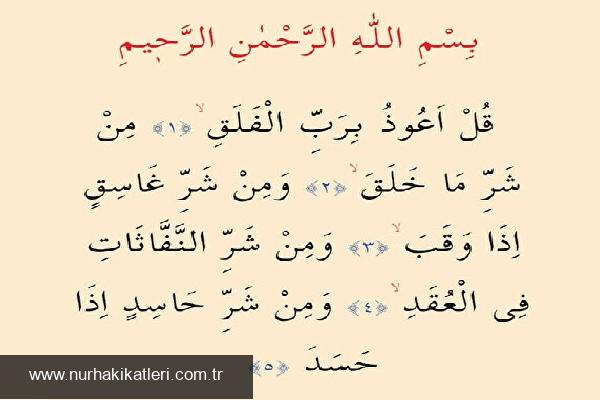 بِسْمِ اللّٰهِ الرَّحْمٰنِ الرَّح۪يمِ
قُلْ اَعُوذُ بِرَبِّ الْفَلَقِۙ ﴿١﴾ مِنْ
شَرِّ مَا خَلَقَۙ ﴿٢﴾ وَمِنْ شَرِّ غَاسِقٍ
اِذَا وَقَبَۙ ﴿٣﴾ وَمِنْ شَرِّ النَّفَّاثَاتِ
فِى الْعُقَدِۙ ﴿٤﴾ وَمِنْ شَرِّ حَاسِدٍ اِذَا
حَسَدَ ﴿٥﴾
www.nurhakikatleri.com.tr